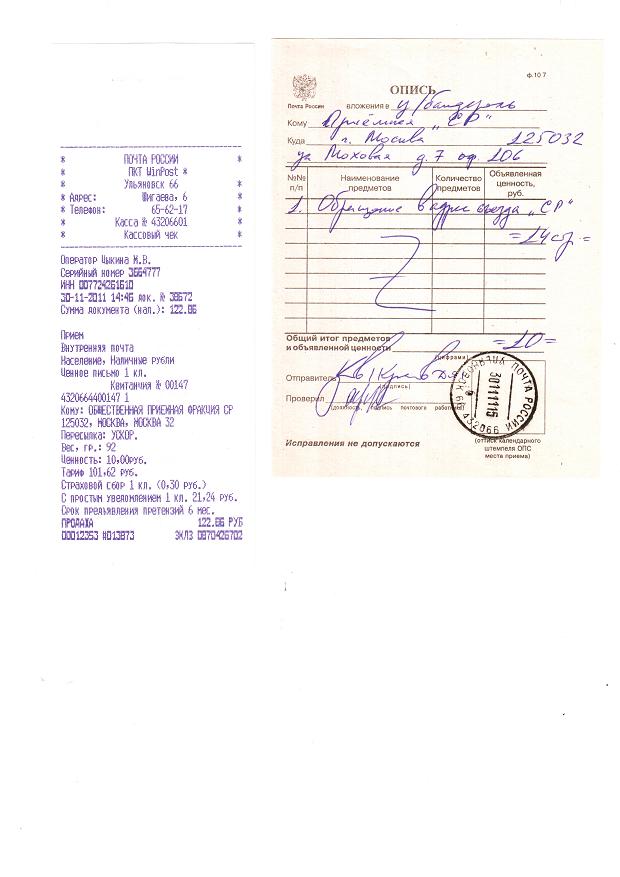 * ПОЧТА РОССИИ *
* ПКТ WinPost *
* Ульяновск 66 *
* Адрес: Шигаева, 6 *
* Телефон: 65-62-17 *
* Касса № 43206601 *
* Кассовый чек *
Оператор Цыкина М.В.
Серийный номер 3664777
ИНН 007724261610
30-11-2011 14:46 док. № 38672
Сумма документа (нал.): 122.86
Прием
Внутренняя почта
Население, Наличные рубли
Ценное письмо 1 кл.
Квитанчия № 00147
4320664400147 1
Кому: ОБЩЕСТВЕННАЯ ПРИЕМНАЯ ФРАКЦИЯ СР
125032, МОСКВА, МОСКВА 32
Пересылка: УСКОР.
Вес, гр.: 92
Ценность: 10,00руб.
Тариф 101,62 руб.
Страховой сбор 1 кл. (0,30 руб.)
С простым уведомлением 1 кл. 21,24 руб.
Срок предъявления претензий 6 мес.
ПРОДАЖА 122.86 РУБ
00012353 #013873 ЭКЛЗ 0870426702
ф.107
Почта России
ОПИСЬ
вложения в ц/бандероль
Кому Приёмная „СР"
Куда г. Москва 125032
ул Моховая д. 7 оф. 106
№№ п/п
Наименование предметов
Количество предметов
Объявленная ценность, руб.
1. Обращение в адрес съезда „СР"
=14 стр=
Общий итог предметов
и объявленной ценности =10=
(цифрами)
Отправитель
(подпись)
Проверил
(должность, подпись почтового работника)
Исправления не допускаются
(оттиск календарного
штемпеля ОПС
места приема)
ПОЧТА РОССИИ
УЛЬЯНОВСК 66
432066